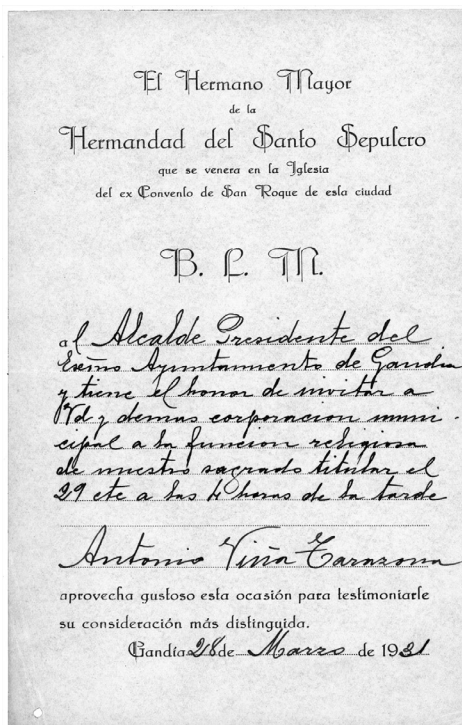 El Hermano Mayor
de la
Hermandad del Santo Sepulcro
que se venera en la Iglesia
del ex Convento de San Roque de esta ciudad
B. L. M.
al Alcalde Presidente del
Excmo Ayuntamiento de Gandia
y tiene el honor de invitar a
Vd y demas corporacion muni-
cipal a la funcion religiosa
de nuestro sagrado titular el
29 cte a las 4 horas de la tarde
Antonio Viña Tarazona
aprovecha gustoso esta ocasión para testimoniarle
su consideración más distinguida.
Gandía 28 de Marzo de 1931